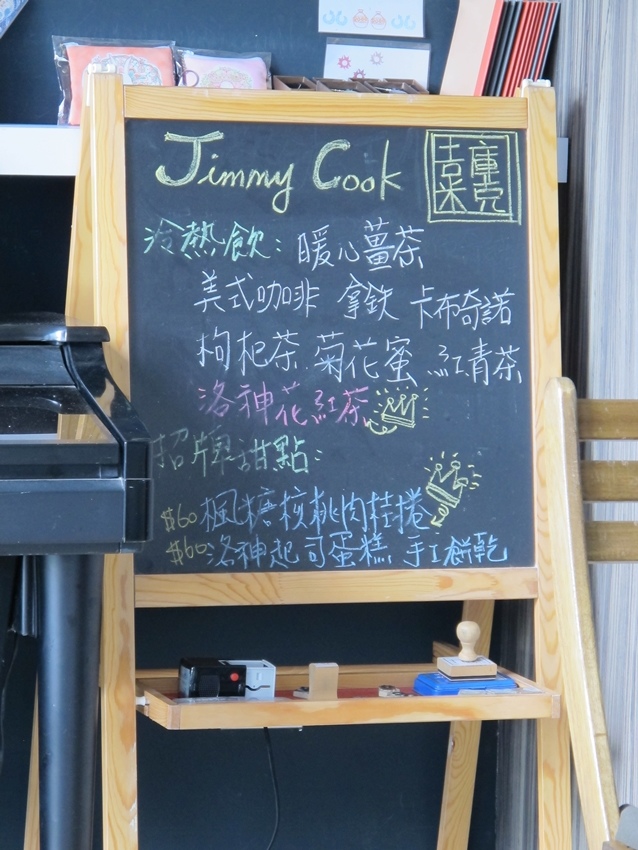 Jimmy Cook 吉米庫克
冷熱飲：暖心薑茶
美式咖啡 拿鐵 卡布奇諾
枸杞茶．菊花蜜．紅青茶
洛神花紅茶
招牌甜點：
$60楓糖核桃肉桂捲
$60洛神起司蛋糕 手工餅乾